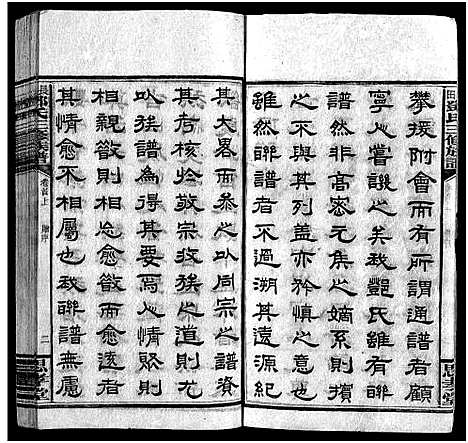 鄧氏三修族譜
思孝堂
攀援附會而有所謂通譜者顧
寧人嘗譏之矣我鄧氏雖有聯
譜然非高密元侯之嫡系則擯
之不與其列蓋亦矜慎之意也
雖然聯譜者不過溯其遠源紀
其大畧而之以同宗之譜資
其考核於敬宗收族之道則尤
以族譜為得其要焉人情聚則
相親散則相忘愈散而愈遠者
其情愈不相屬也我聯譜無慮
鄧氏三修族譜
卷首上
二
思孝堂